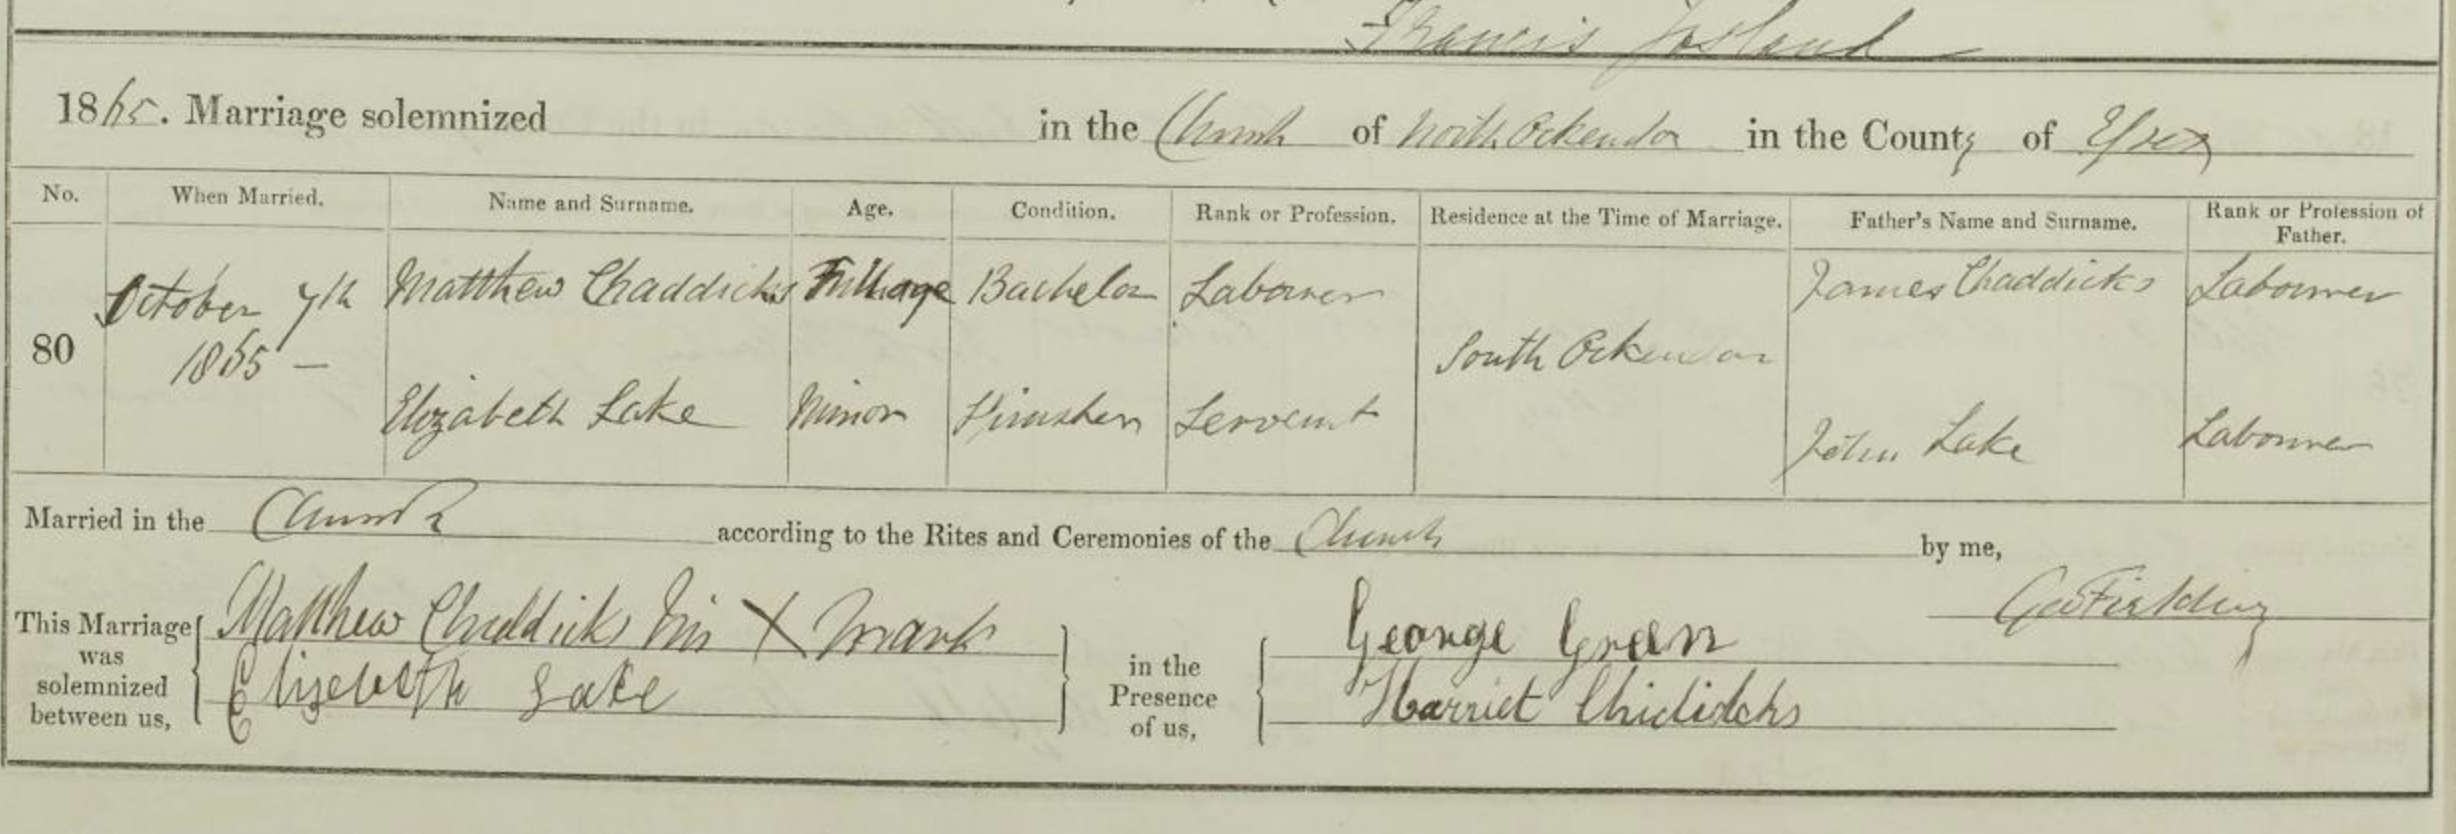 Francis Josland
1865. Marriage solemnized in the Church of North Ockendon in the County of Essex
No. When Married. Name and Surname. Age. Condition. Rank or Profession. Residence at the Time of Marriage. Father's Name and Surname. Rank or Profession of Father.
80 October 7th 1865 — Matthew Chaddicks Full age Bachelor Labourer South Ockendon James Chaddicks Labourer
Elizabeth Lake Minor Spinster Servant John Lake Labourer
Married in the Church according to the Rites and Ceremonies of the Church by me,
Fielding
This Marriage was solemnized between us, Matthew Chaddicks his X mark in the Presence of us, George Green
Elizebeth Lake Harriet Chididcks